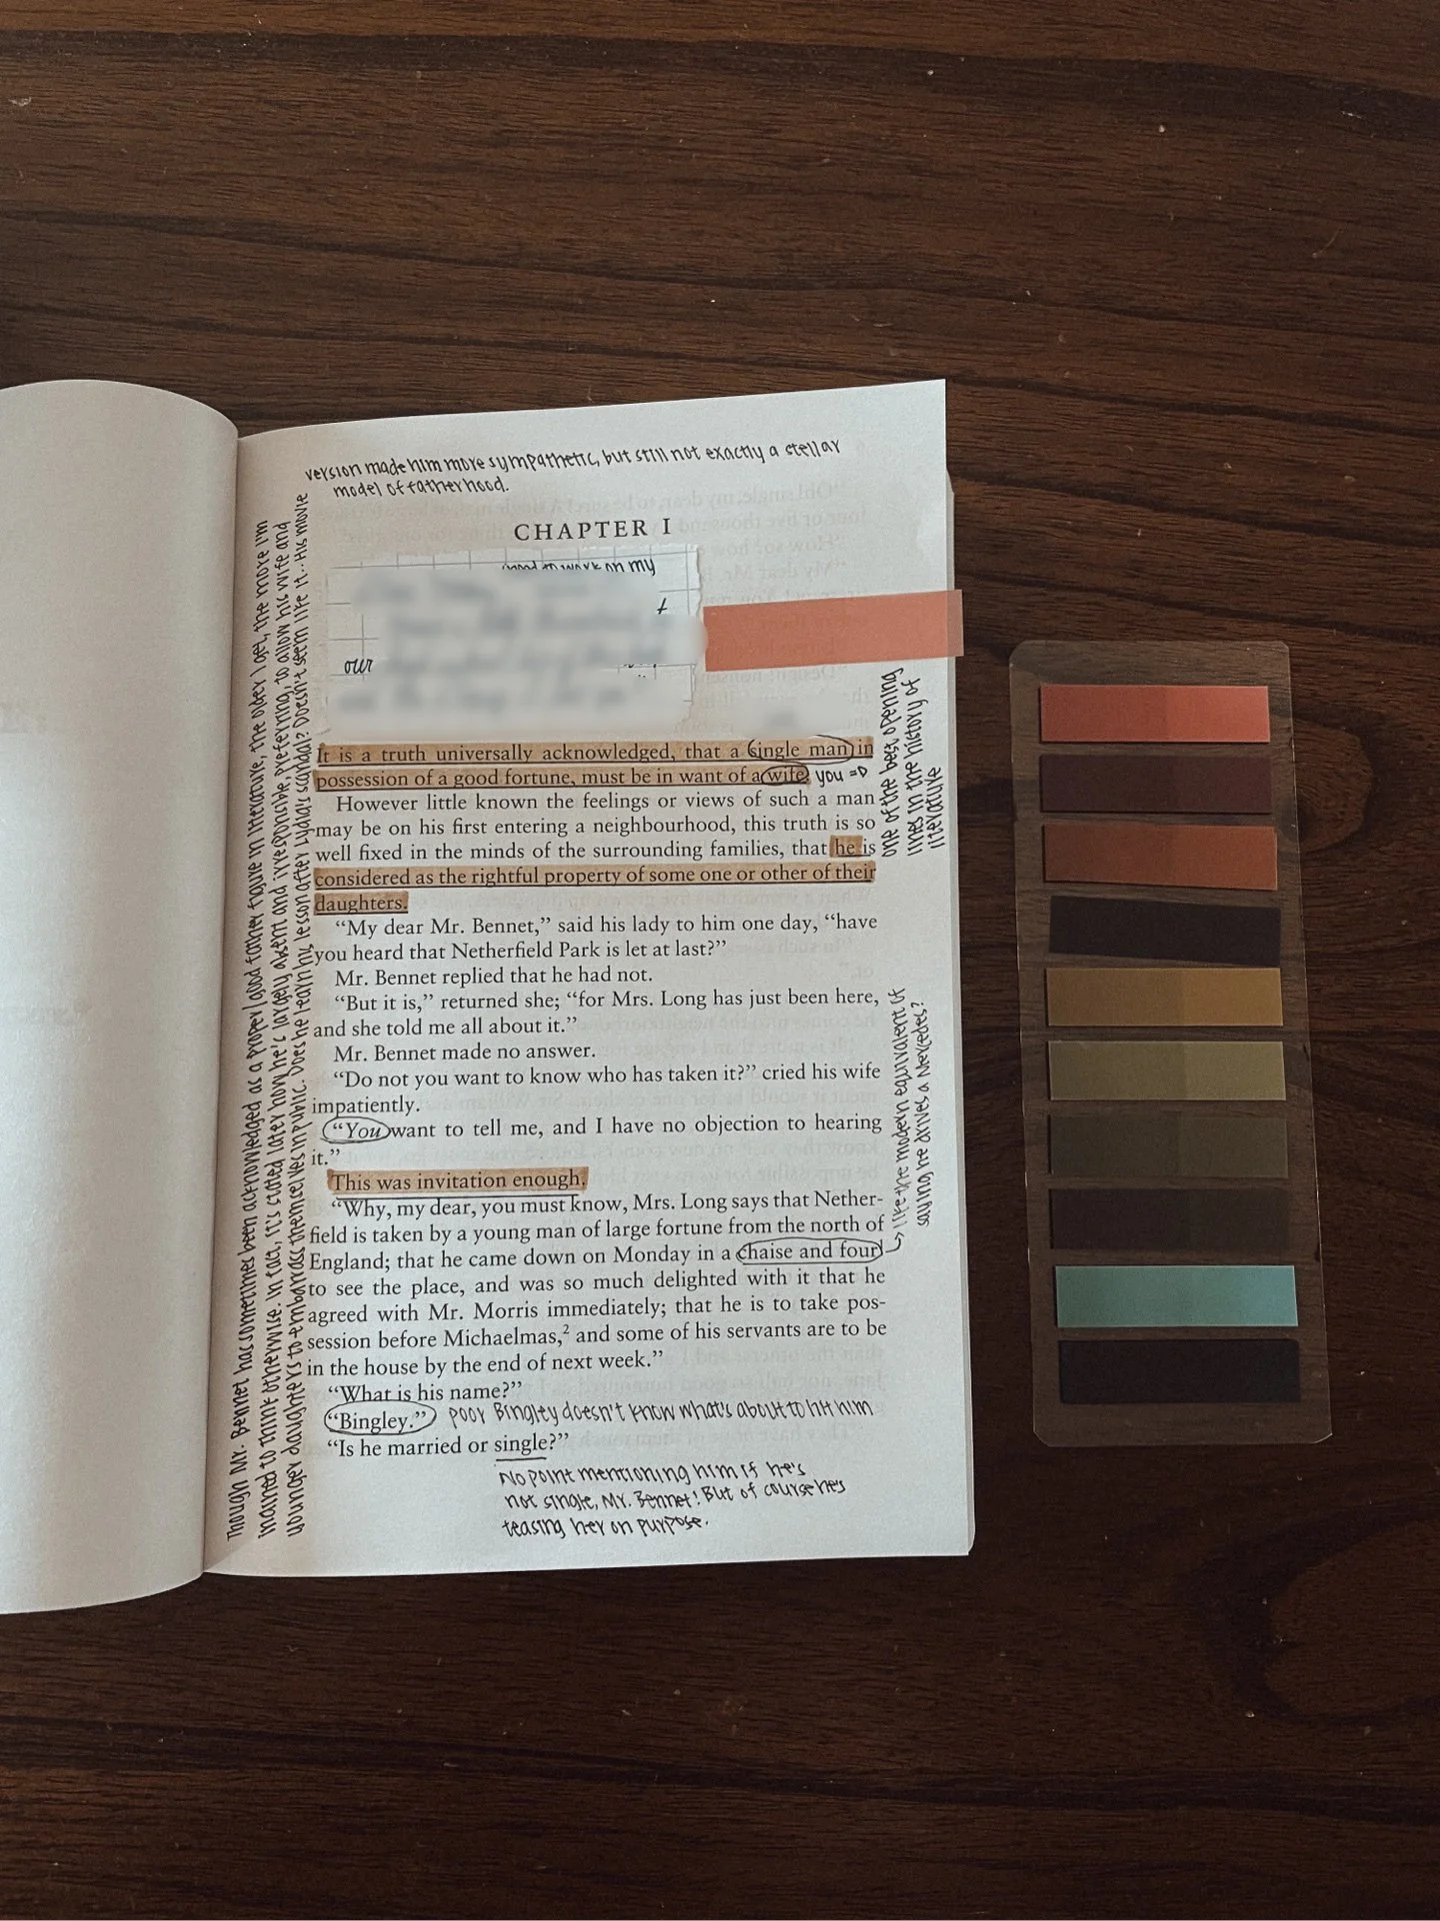 version made him more sympathetic, but still not exactly a stellar
model of fatherhood.
CHAPTER I
on my
our
It is a truth universally acknowledged, that a single man in
possession of a good fortune, must be in want of a wife. you =D
However little known the feelings or views of such a man
may be on his first entering a neighbourhood, this truth is so
well fixed in the minds of the surrounding families, that he is
considered as the rightful property of some one or other of their
daughters.
“My dear Mr. Bennet,” said his lady to him one day, “have
you heard that Netherfield Park is let at last?”
Mr. Bennet replied that he had not.
“But it is,” returned she; “for Mrs. Long has just been here,
and she told me all about it.”
Mr. Bennet made no answer.
“Do not you want to know who has taken it?” cried his wife
impatiently.
“You want to tell me, and I have no objection to hearing
it.”
This was invitation enough.
“Why, my dear, you must know, Mrs. Long says that Nether-
field is taken by a young man of large fortune from the north of
England; that he came down on Monday in a chaise and four
to see the place, and was so much delighted with it that he
agreed with Mr. Morris immediately; that he is to take pos-
session before Michaelmas,² and some of his servants are to be
in the house by the end of next week.”
“What is his name?”
“Bingley.” poor Bingley doesn't know what's about to hit him
“Is he married or single?”
No point mentioning him if he's
not single, Mr. Bennet! But of course he's
teasing her on purpose.
Though Mr. Bennet has sometimes been acknowledged as a proper/good father figure in literature, the older I get, the more I'm
inclined to think otherwise. In fact, it's stated later how he's largely absent and irresponsible, preferring, to allow his wife and
younger daughters to embarrass themselves in public. Does he learn his lesson after Lydia's scandal? Doesn't seem like it.. His movie
one of the best opening
lines in the history of
literature
like the modern equivalent of
saying he drives a Mercedes?